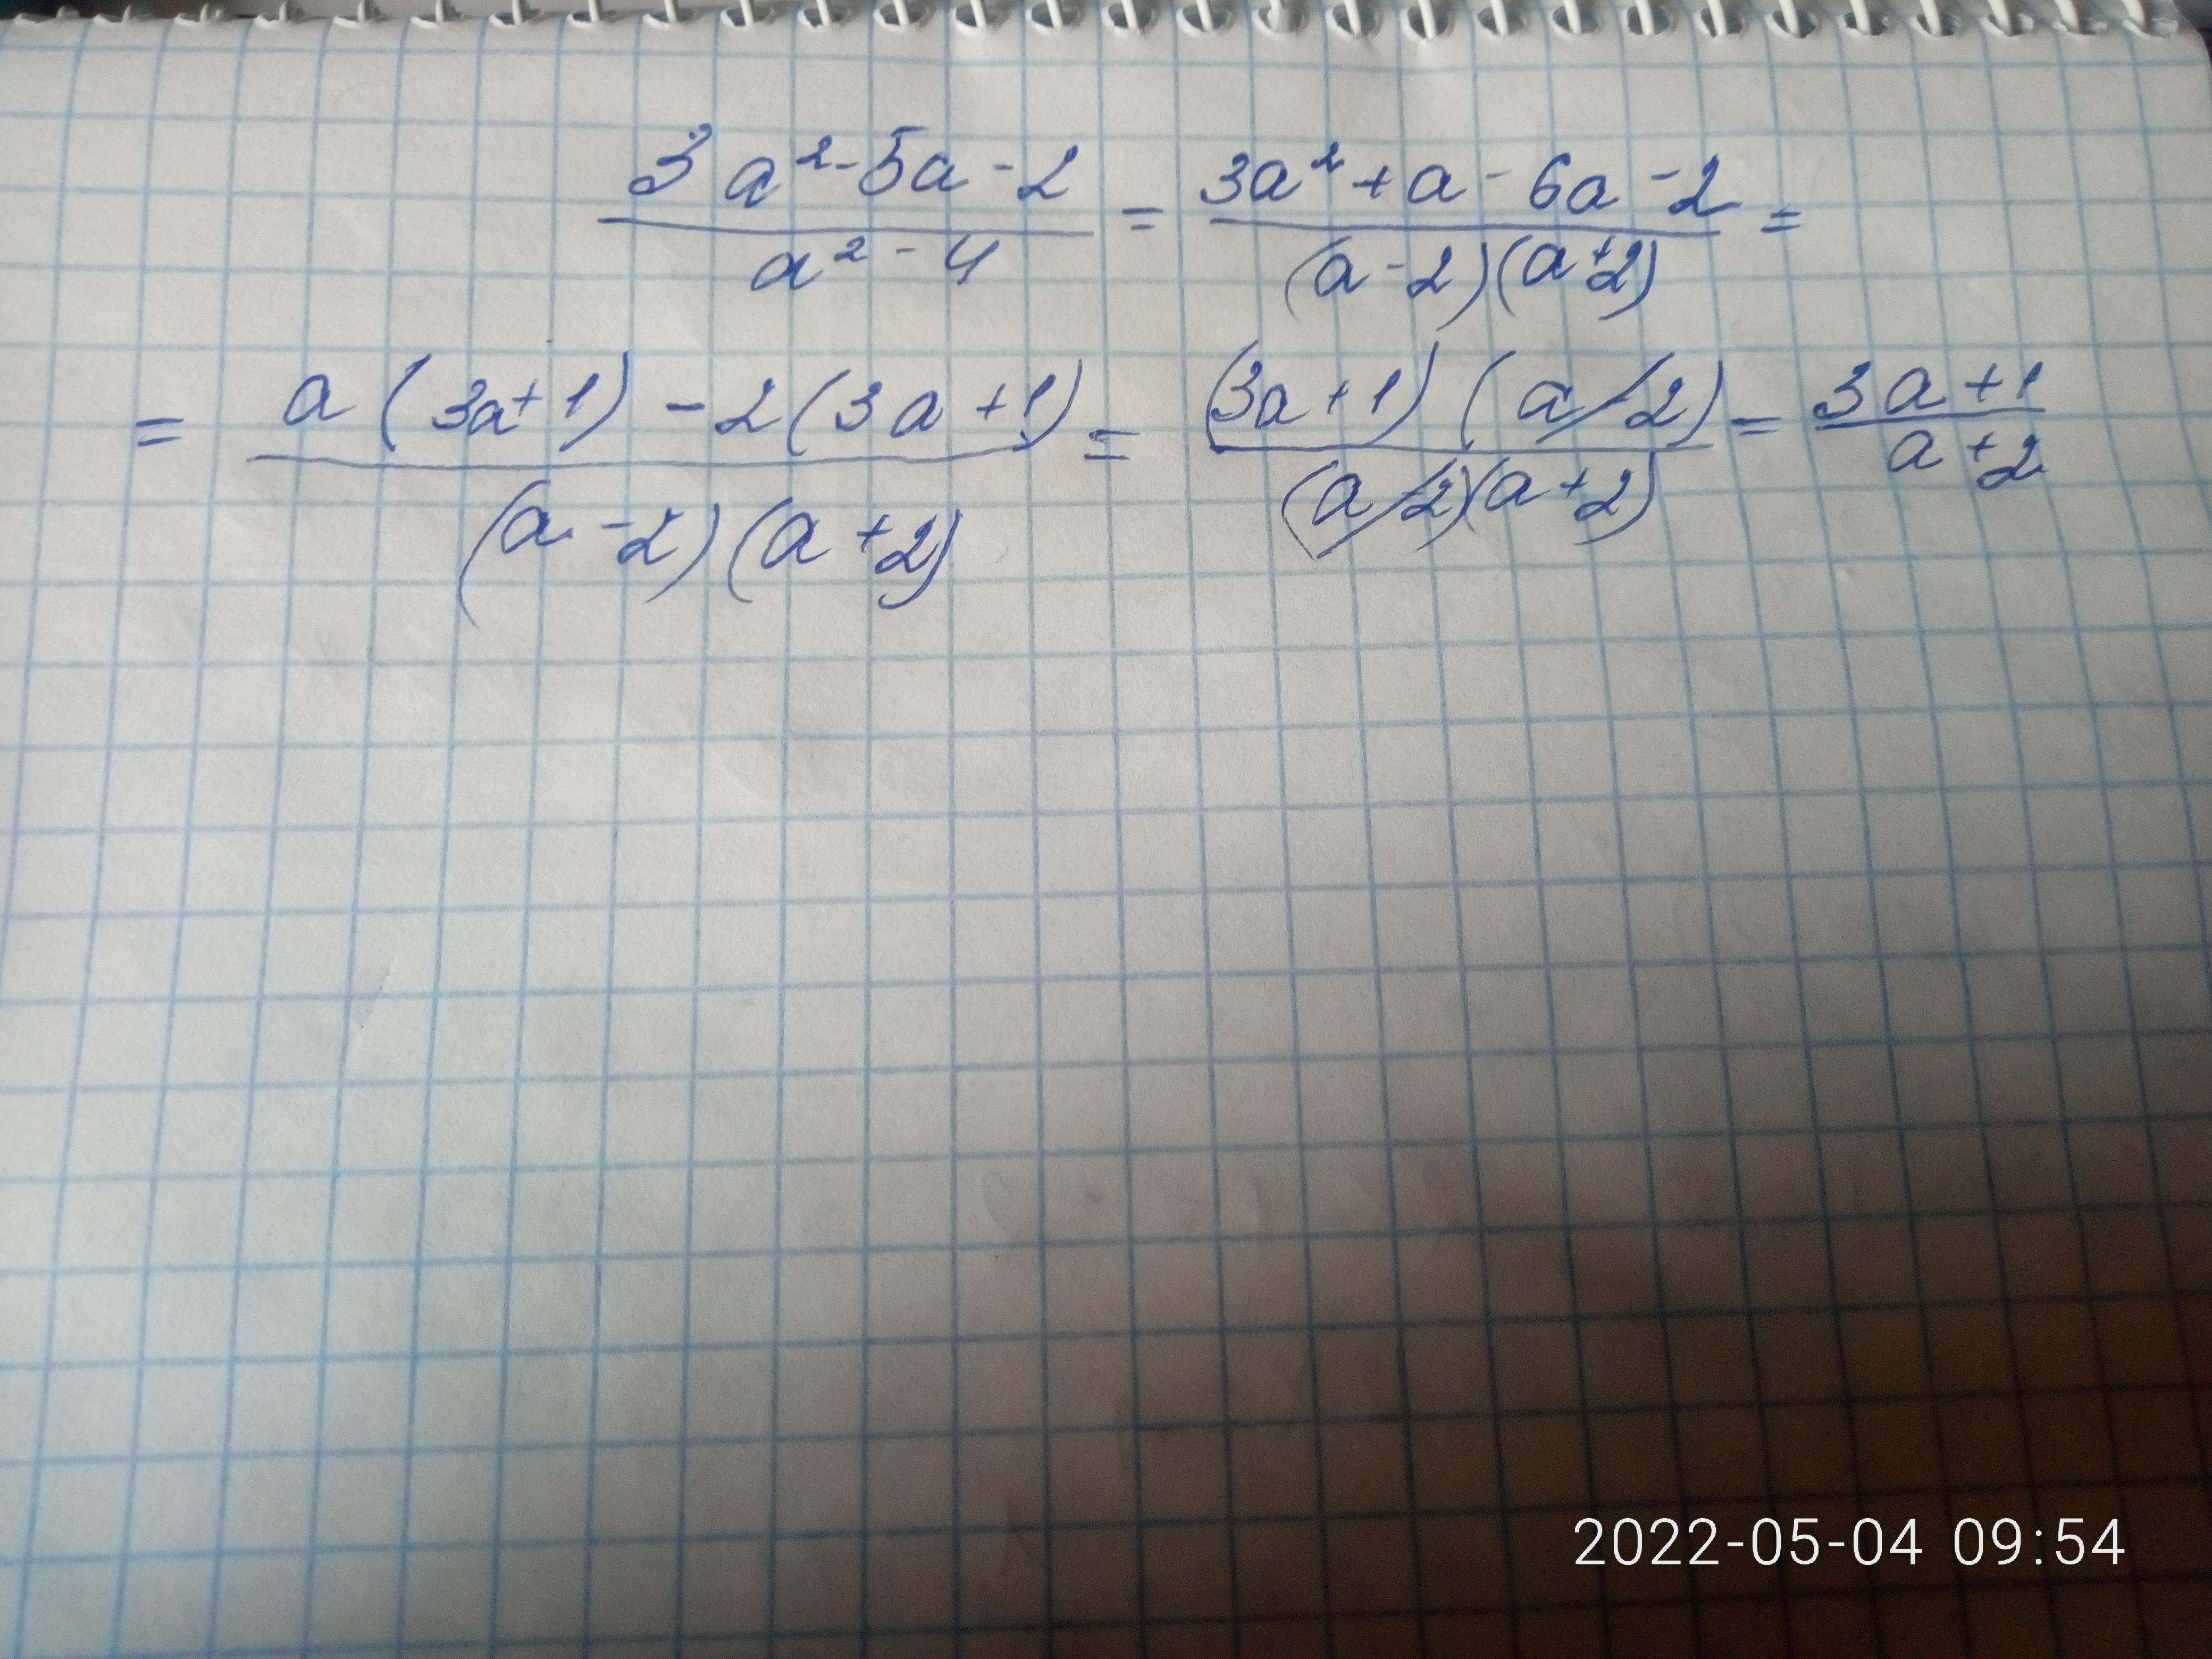 (3a² - 5a - 2)/(a² - 4) = (3a² + a - 6a - 2)/((a - 2)(a + 2)) =
= (a(3a + 1) - 2(3a + 1))/((a - 2)(a + 2)) = ((3a + 1)(a - 2))/((a - 2)(a + 2)) = (3a + 1)/(a + 2)
2022-05-04 09:54